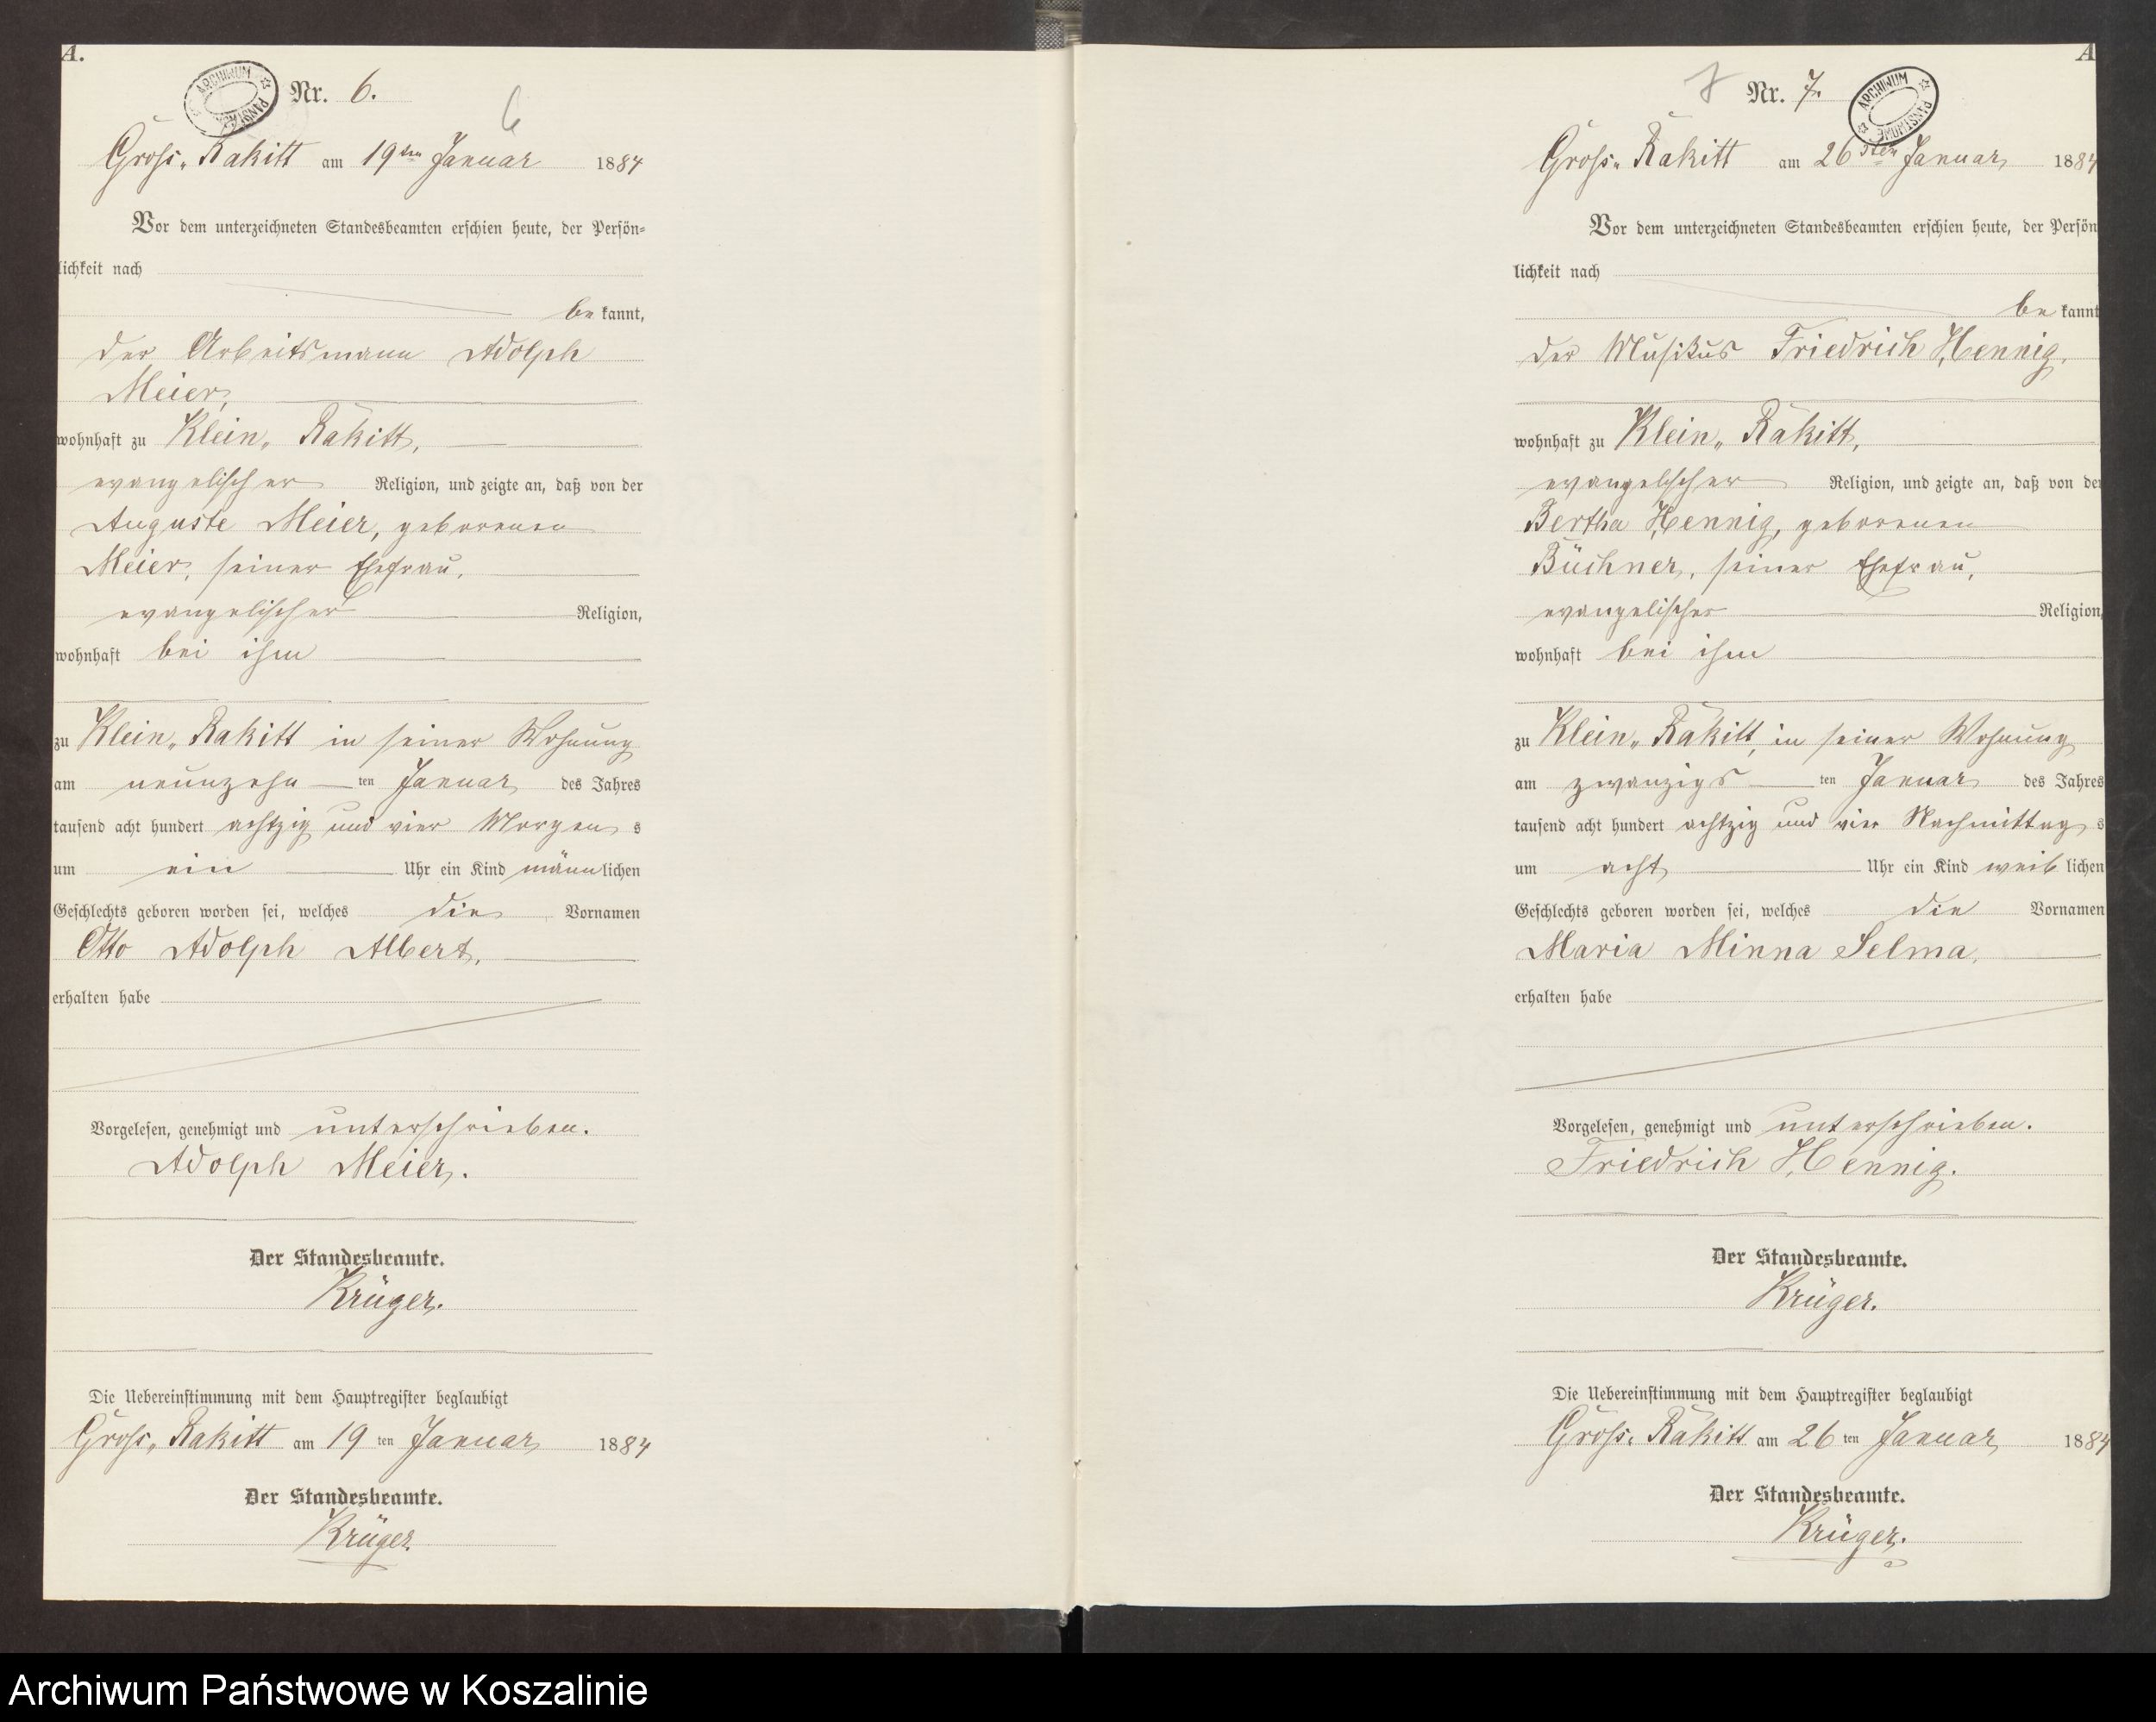 A.
ARCHIWUM PAŃSTWOWE
Nr. 6.
6
Gross-Rakitt am 19ten Januar 1884
Vor dem unterzeichneten Standesbeamten erschien heute, der Persön-
lichkeit nach
bekannt,
der Arbeitsmann Adolph
Meier,
wohnhaft zu Klein-Rakitt,
evangelischer Religion, und zeigte an, daß von der
Auguste Meier, geborenen
Meier, seiner Ehefrau,
evangelischer Religion,
wohnhaft bei ihm
zu Klein-Rakitt in seiner Wohnung
am neunzehnten Januar des Jahres
tausend acht hundert achtzig und vier Morgens
um ein Uhr ein Kind männlichen
Geschlechts geboren worden sei, welches die Vornamen
Otto Adolph Albert,
erhalten habe
Vorgelesen, genehmigt und unterschrieben.
Adolph Meier.
Der Standesbeamte.
Krüger.
Die Uebereinstimmung mit dem Hauptregister beglaubigt
Gross-Rakitt am 19ten Januar 1884
Der Standesbeamte.
Krüger.
A
7 Nr. 7.
ARCHIWUM PAŃSTWOWE
Gross-Rakitt am 26sten Januar 1884
Vor dem unterzeichneten Standesbeamten erschien heute, der Persön
lichkeit nach
bekannt
der Musikus Friedrich Hennig,
wohnhaft zu Klein-Rakitt,
evangelischer Religion, und zeigte an, daß von der
Bertha Hennig, geborenen
Büchner, seiner Ehefrau,
evangelischer Religion,
wohnhaft bei ihm
zu Klein-Rakitt, in seiner Wohnung
am zwanzigsten Januar des Jahres
tausend acht hundert achtzig und vier Nachmittags
um acht Uhr ein Kind weiblichen
Geschlechts geboren worden sei, welches die Vornamen
Maria Minna Selma,
erhalten habe
Vorgelesen, genehmigt und unterschrieben.
Friedrich Hennig.
Der Standesbeamte.
Krüger.
Die Uebereinstimmung mit dem Hauptregister beglaubigt
Gross-Rakitt am 26ten Januar 1884
Der Standesbeamte.
Krüger.
Archiwum Państwowe w Koszalinie